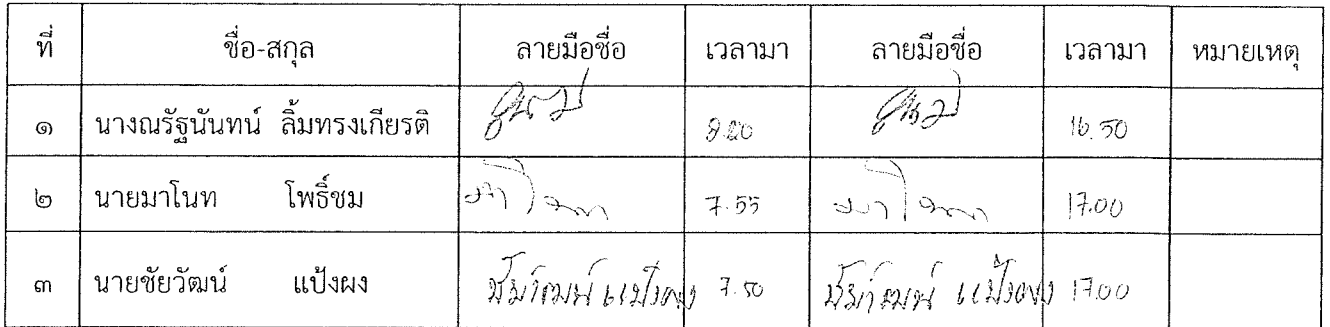 ที่ ชื่อ-สกุล ลายมือชื่อ เวลามา ลายมือชื่อ เวลามา หมายเหตุ
๑ นางณรัฐนันทน์ ลิ้มทรงเกียรติ 16.50
๒ นายมาโนท โพธิ์ชม มาโนท 7.55 มาโนท 17.00
๓ นายชัยวัฒน์ แป้งผง ชัยวัฒน์ แป้งผง 7.50 ชัยวัฒน์ แป้งผง 17.00